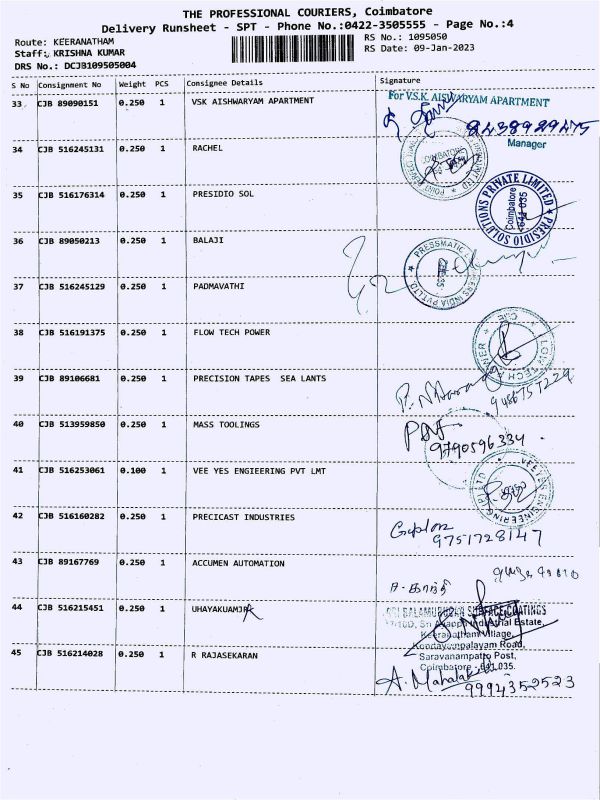 THE PROFESSIONAL COURIERS, Coimbatore
Delivery Runsheet - SPT - Phone No.:0422-3505555 - Page No.:4
Route: KEERANATHAM
RS No.: 1095050
Staff: KRISHNA KUMAR
RS Date: 09-Jan-2023
DRS No.: DCJB109505004
S No Consignment No Weight PCS Consignee Details Signature
33 CJB 89090151 0.250 1 VSK AISHWARYAM APARTMENT
For V.S.K. AISWARYAM APARTMENT
Manager
34 CJB 516245131 0.250 1 RACHEL
COIMBATORE
35 CJB 516176314 0.250 1 PRESIDIO SOL
PRESIDIO SOLUTIONS PRIVATE LIMITED
Coimbatore
641 035
36 CJB 89050213 0.250 1 BALAJI
37 CJB 516245129 0.250 1 PADMAVATHI
38 CJB 516191375 0.250 1 FLOW TECH POWER
FLOW TECH POWER
CBE
39 CJB 89106681 0.250 1 PRECISION TAPES SEA LANTS
40 CJB 513959850 0.250 1 MASS TOOLINGS
9790596334
41 CJB 516253061 0.100 1 VEE YES ENGIEERING PVT LMT
42 CJB 516160282 0.250 1 PRECICAST INDUSTRIES
9751728147
43 CJB 89167769 0.250 1 ACCUMEN AUTOMATION
44 CJB 516215451 0.250 1 UHAYAKUAMJR
SRI BALAMURUGAN SURFACE COATINGS
Industrial Estate,
Keeranatham Village,
Kondayampalayam Road,
Saravanampatti Post,
Coimbatore - 641 035.
45 CJB 516214028 0.250 1 R RAJASEKARAN
A. Mahalakshmi
9994352523